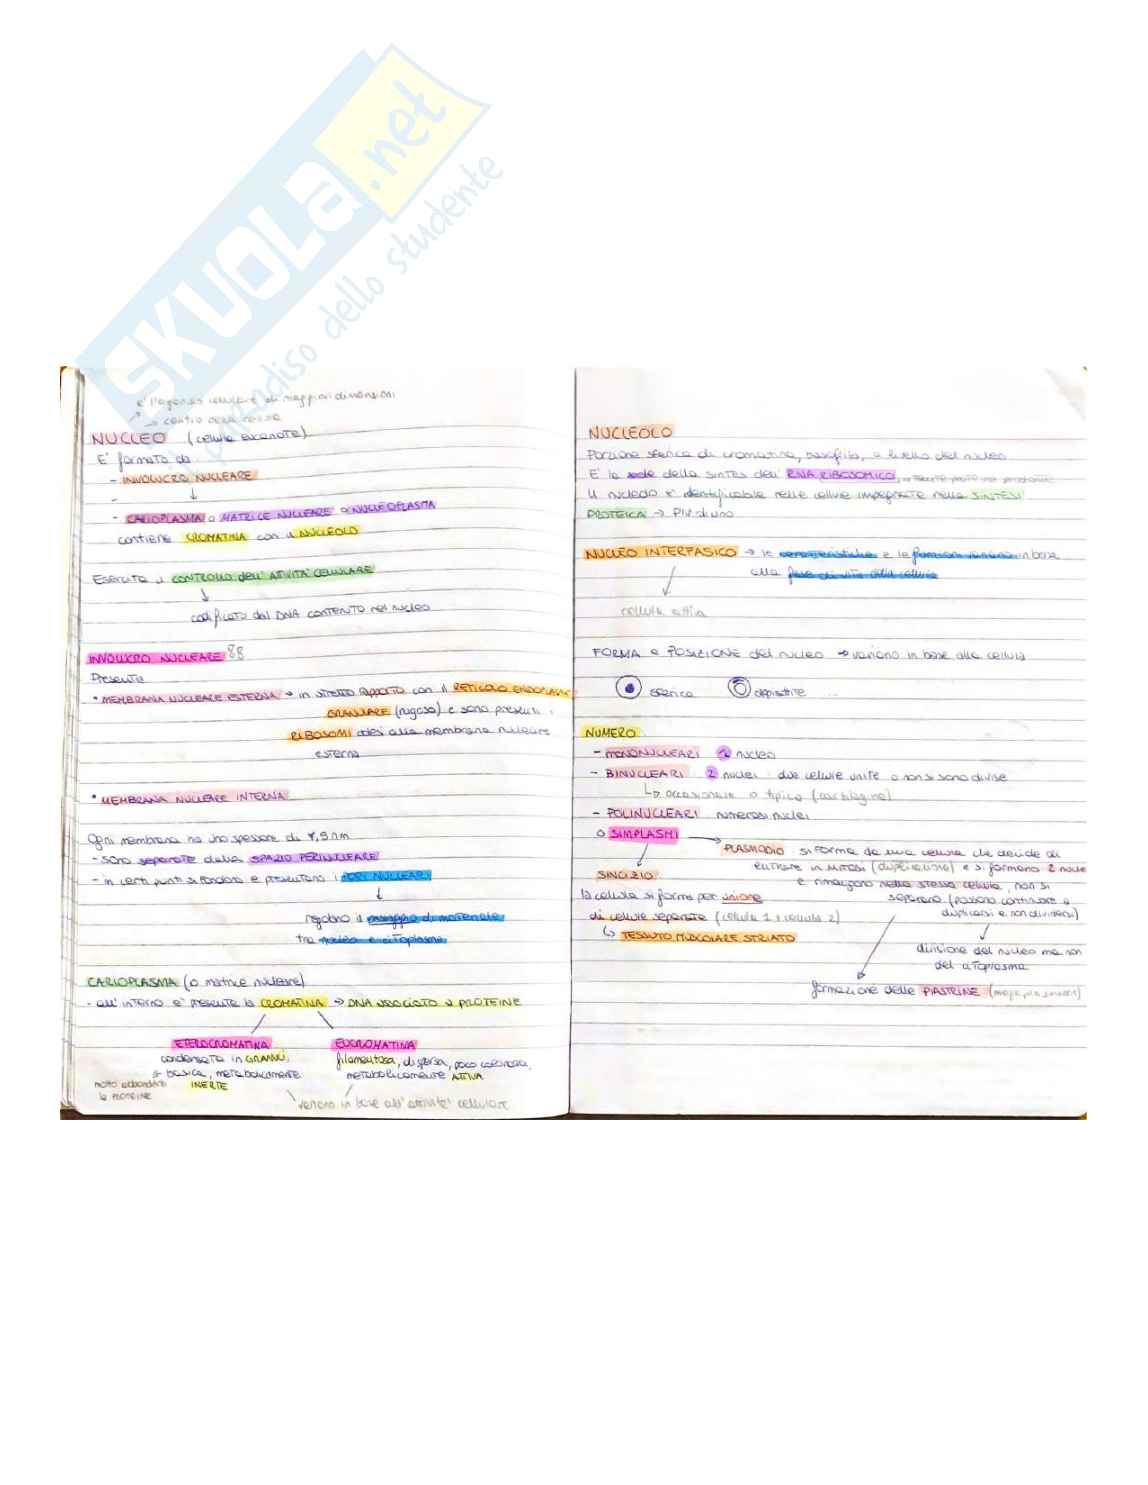 SKUOLA.net
il paradiso dello studente
è l'organulo cellulare di maggiori dimensioni
→ centro della cellula
NUCLEO (cellula eucariote)
E' formato da
- INVOLUCRO NUCLEARE
↓
-
- CARIOPLASMA o MATRICE NUCLEARE o NUCLEOPLASMA
contiene CROMATINA con il NUCLEOLO
Esercita il CONTROLLO dell'ATIVITA' CELLULARE
↓
codificato dal DNA CONTENUTO nel nucleo
INVOLUCRO NUCLEARE 88
Presenta
• MEMBRANA NUCLEARE ESTERNA → in stretto rapporto con il RETICOLO ENDOPLASM
GRANULARE (rugoso) e sono presenti i
RIBOSOMI adesi alla membrana nucleare
esterna
• MEMBRANA NUCLEARE INTERNA
Ogni membrana ha uno spessore di 7,5 nm
- sono separate dallo SPAZIO PERINUCLEARE
- in certi punti si fondono e presentano i PORI NUCLEARI
↓
regolano il passaggio di materiale
tra nucleo e citoplasma
CARIOPLASMA (o matrice nucleare)
- all'interno è presente la CROMATINA → DNA ASSOCIATO A PROTEINE
ETEROCROMATINA
condensata in GRANULI
basica, metabolicamente
INERTE
molto abbondanti
le proteine
EUCROMATINA
filamentosa, dispersa, poco colorata,
metabolicamente ATTIVA
variano in base all'attività cellulare
NUCLEOLO
Porzione sferica di cromatina, basofila, a livello del nucleo
E' la sede della sintesi dell'RNA RIBOSOMICO,
Il nucleolo è identificabile nelle cellule impegnate nella SINTESI
PROTEICA → Più di uno
NUCLEO INTERFASICO → le caratteristiche e le funzioni variano in base
alla fase di vita della cellula
cellula attiva
FORMA e POSIZIONE del nucleo → variano in base alla cellula
sferico appiattite ...
NUMERO
- MONONUCLEARI 1 nucleo
- BINUCLEARI 2 nuclei due cellule unite o non si sono divise
↳ occasionale o tipico (cartilagine)
- POLINUCLEARI numerosi nuclei
o SIMPLASMI
→ PLASMODIO si forma da una cellula che decide di
entrare in MITOSI (duplicazione) e si formano 2 nuclei
e rimangono nella stessa cellula, non si
separano (possono continuare a
duplicarsi e non dividersi)
SINCIZIO
la cellula si forma per unione
di cellule separate (cellula 1 + cellula 2)
↳ TESSUTO MUSCOLARE STRIATO
divisione del nucleo ma non
del citoplasma
formazione delle PIASTRINE